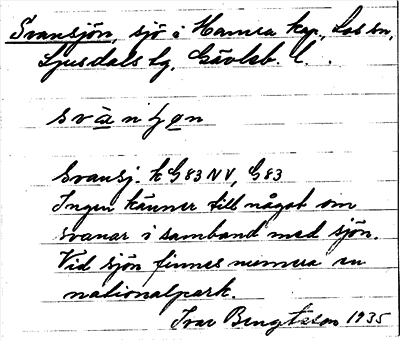 Svansjön, sjö i Hamra kap., Los sn,
Ljusdals tg, Gävleb. l.
svänʃɷn
Svansj. k G83 NV, G83
Ingen känner till något om
svanar i samband med sjön.
Vid sjön finnes numera en
nationalpark.
Ivar Bengtsson 1935